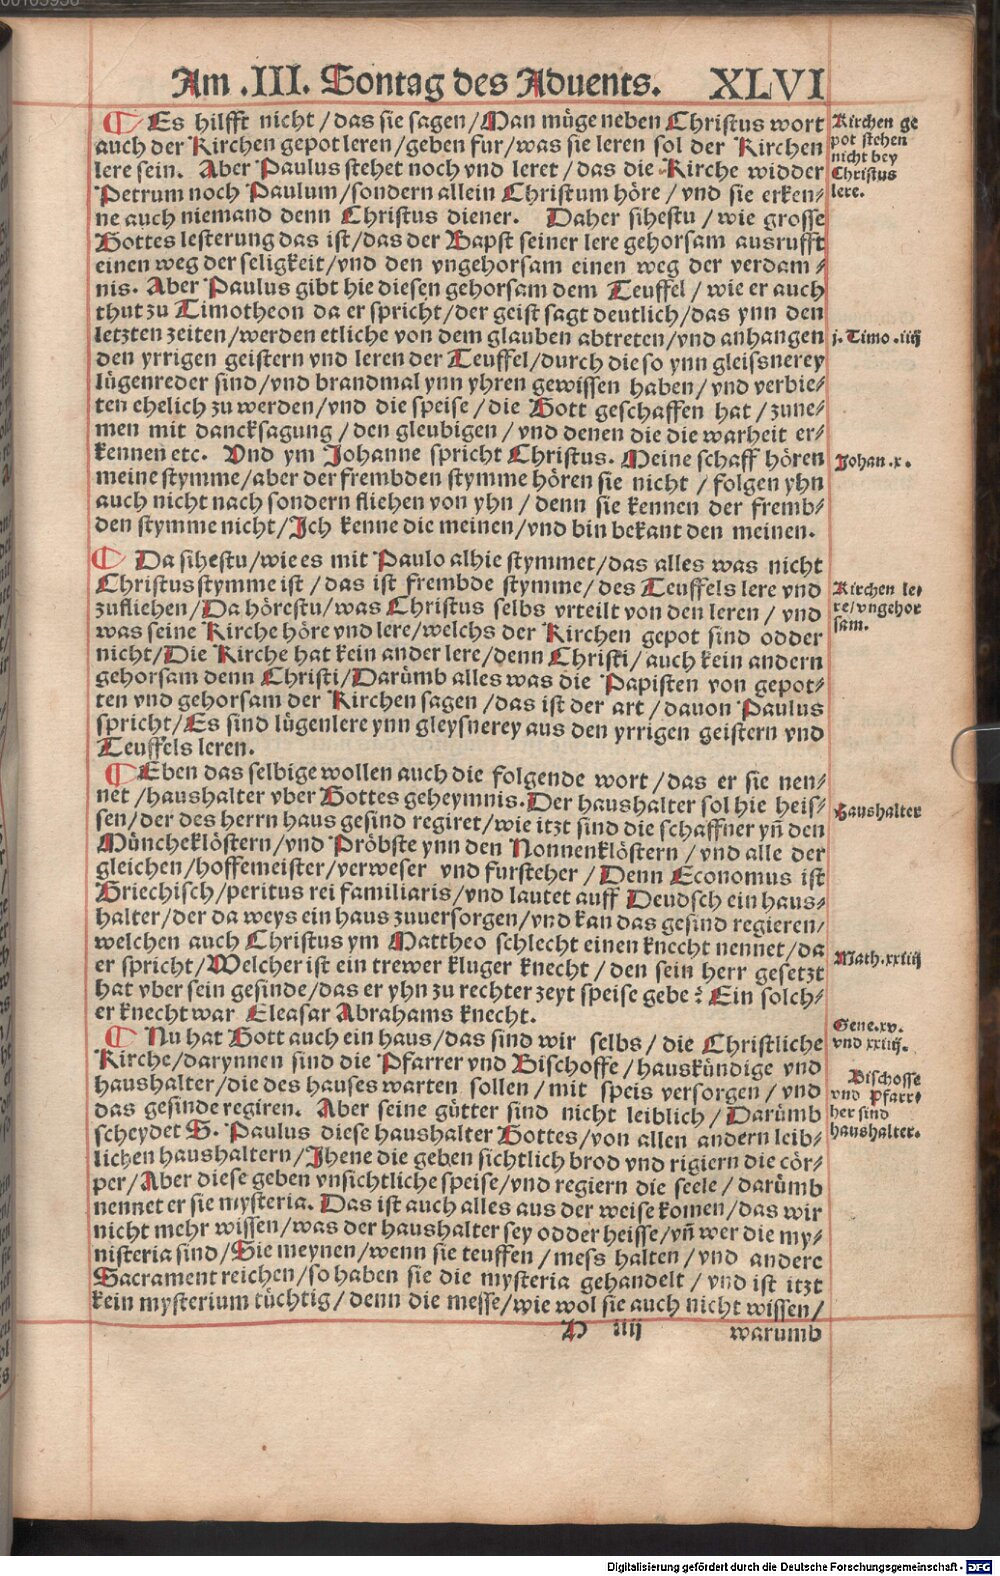 Am .III. Sontag des Aduents. XLVI
¶ Es hilfft nicht / das sie sagen / Man müge neben Christus wort
auch der Kirchen gepot leren / geben fur / was sie leren sol der Kirchen
lere sein. Aber Paulus stehet noch vnd leret / das die Kirche widder
Petrum noch Paulum / sondern allein Christum höre / vnd sie erken-
ne auch niemand denn Christus diener. Daher sihestu / wie grosse
Gottes lesterung das ist / das der Bapst seiner lere gehorsam ausrufft
einen weg der seligkeit / vnd den vngehorsam einen weg der verdam-
nis. Aber Paulus gibt hie diesen gehorsam dem Teuffel / wie er auch
thut zu Timotheon da er spricht / der geist sagt deutlich / das ynn den
letzten zeiten / werden etliche von dem glauben abtreten / vnd anhangen
den yrrigen geistern vnd leren der Teuffel / durch die so ynn gleissnerey
lügenreder sind / vnd brandmal ynn yhren gewissen haben / vnd verbie-
ten ehelich zu werden / vnd die speise / die Gott geschaffen hat / zune-
men mit dancksagung / den gleubigen / vnd denen die die warheit er-
kennen etc. Vnd ym Johanne spricht Christus. Meine schaff hören
meine stymme / aber der frembden stymme hören sie nicht / folgen yhn
auch nicht nach sondern fliehen von yhn / denn sie kennen der fremb-
den stymme nicht / Jch kenne die meinen / vnd bin bekant den meinen.
¶ Da sihestu / wie es mit Paulo alhie stymmet / das alles was nicht
Christus stymme ist / das ist frembde stymme / des Teuffels lere vnd
zufliehen / Da hörestu / was Christus selbs vrteilt von den leren / vnd
was seine Kirche höre vnd lere / welchs der Kirchen gepot sind odder
nicht / Die Kirche hat kein ander lere / denn Christi / auch kein andern
gehorsam denn Christi / Darümb alles was die Papisten von gepot-
ten vnd gehorsam der Kirchen sagen / das ist der art / dauon Paulus
spricht / Es sind lügenlere ynn gleysnerey aus den yrrigen geistern vnd
Teuffels leren.
¶ Eben das selbige wollen auch die folgende wort / das er sie nen-
net / haushalter vber Gottes geheymnis. Der haushalter sol hie heis-
sen / der des herrn haus gesind regiret / wie itzt sind die schaffner yñ den
Müncheklöstern / vnd Pröbste ynn den Nonnenklöstern / vnd alle der
gleichen / hoffemeister / verweser vnd fursteher / Denn Economus ist
Griechisch / peritus rei familiaris / vnd lautet auff Deudsch ein haus-
halter / der da weys ein haus zuuersorgen / vnd kan das gesind regieren /
welchen auch Christus ym Mattheo schlecht einen knecht nennet / da
er spricht / Welcher ist ein trewer kluger knecht / den sein herr gesetzt
hat vber sein gesinde / das er yhn zu rechter zeyt speise gebe? Ein solch-
er knecht war Eleasar Abrahams knecht.
¶ Nu hat Gott auch ein haus / das sind wir selbs / die Christliche
Kirche / darynnen sind die Pfarrer vnd Bischoffe / hauskündige vnd
haushalter / die des hauses warten sollen / mit speis versorgen / vnd
das gesinde regiren. Aber seine gütter sind nicht leiblich / Darümb
scheydet S. Paulus diese haushalter Gottes / von allen andern leib-
lichen haushaltern / Jhene die geben sichtlich brod vnd rigiern die cör-
per / Aber diese geben vnsichtliche speise / vnd regiern die seele / darümb
nennet er sie mysteria. Das ist auch alles aus der weise komen / das wir
nicht mehr wissen / was der haushalter sey odder heisse / vñ wer die my-
nisteria sind / Sie meynen / wenn sie teuffen / mess halten / vnd andere
Sacrament reichen / so haben sie die mysteria gehandelt / vnd ist itzt
kein mysterium tüchtig / denn die messe / wie wol sie auch nicht wissen /
iiij warumb
Kirchen ge
pot stehen
nicht bey
Christus
lere.
j. Timo .iiij
Johan .x.
Kirchen le-
re / vngehor
sam.
Haushalter
Math.xxiiij
Gene.xv.
vnd xxiiij.
Bischoffe
vnd Pfarr-
her sind
haushalter.
Digitalisierung gefördert durch die Deutsche Forschungsgemeinschaft - DFG